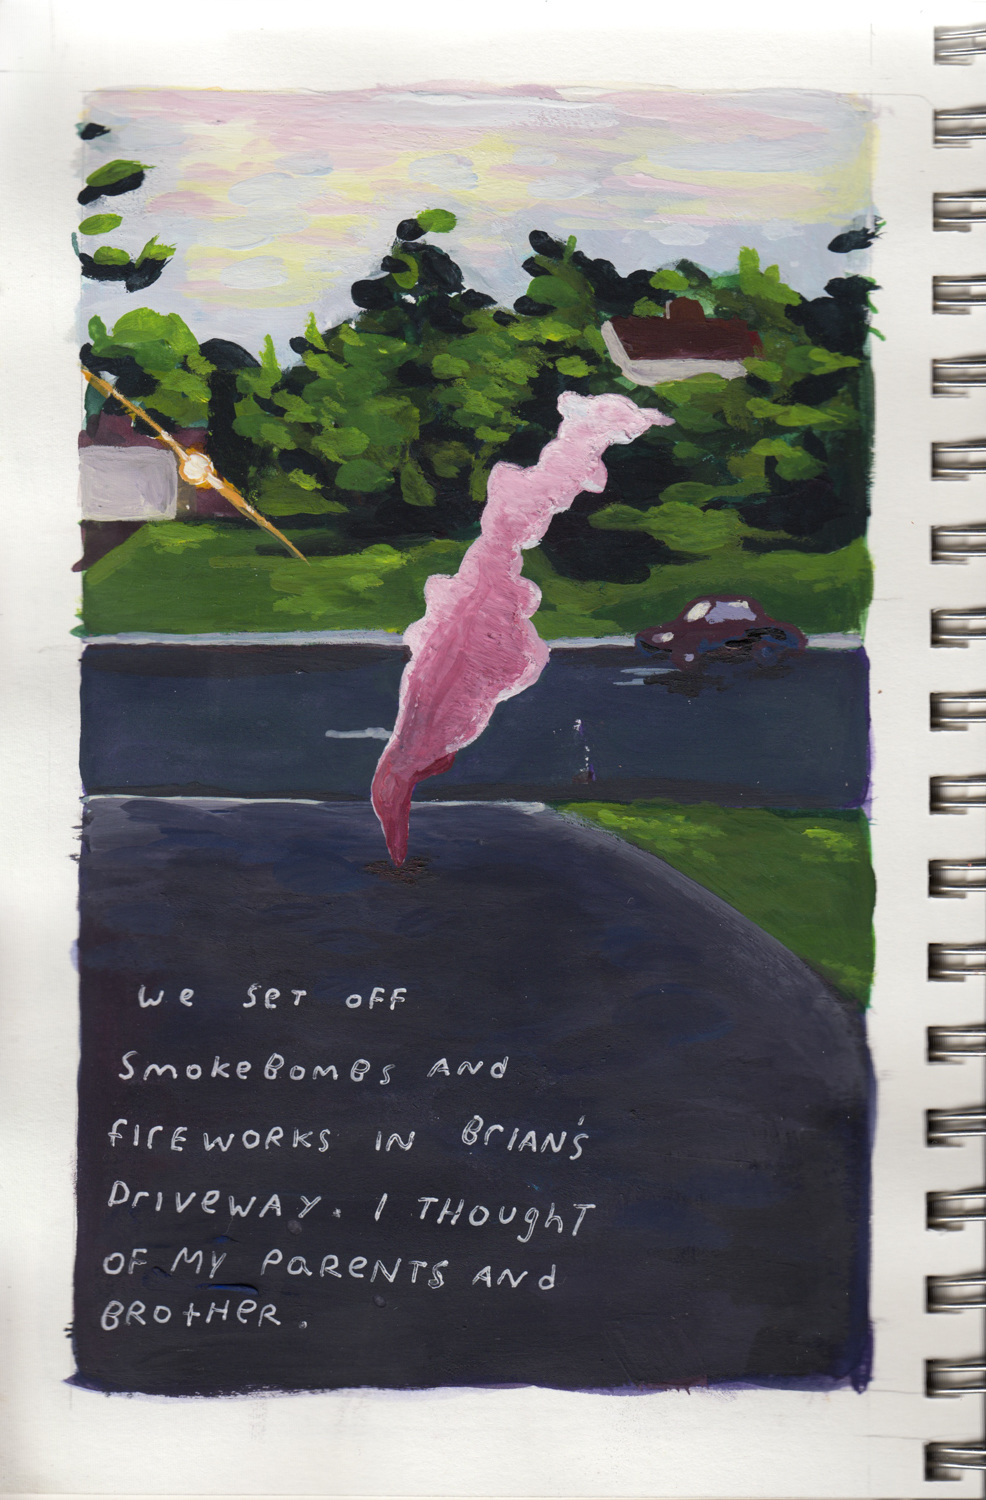 We SeT OFF
SmokeBomBs AND
fIrEWORKS IN BrIAN'S
DrIVeWAY. I THOughT
OF MY PaReNTS ANd
BROtHeR.